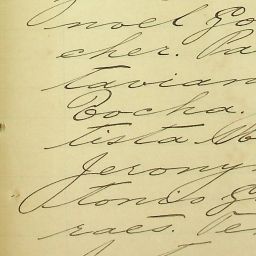 noel Go
cher. Pa
tavian
Rocha.
tista
Jerony
tonio G
raes. Te